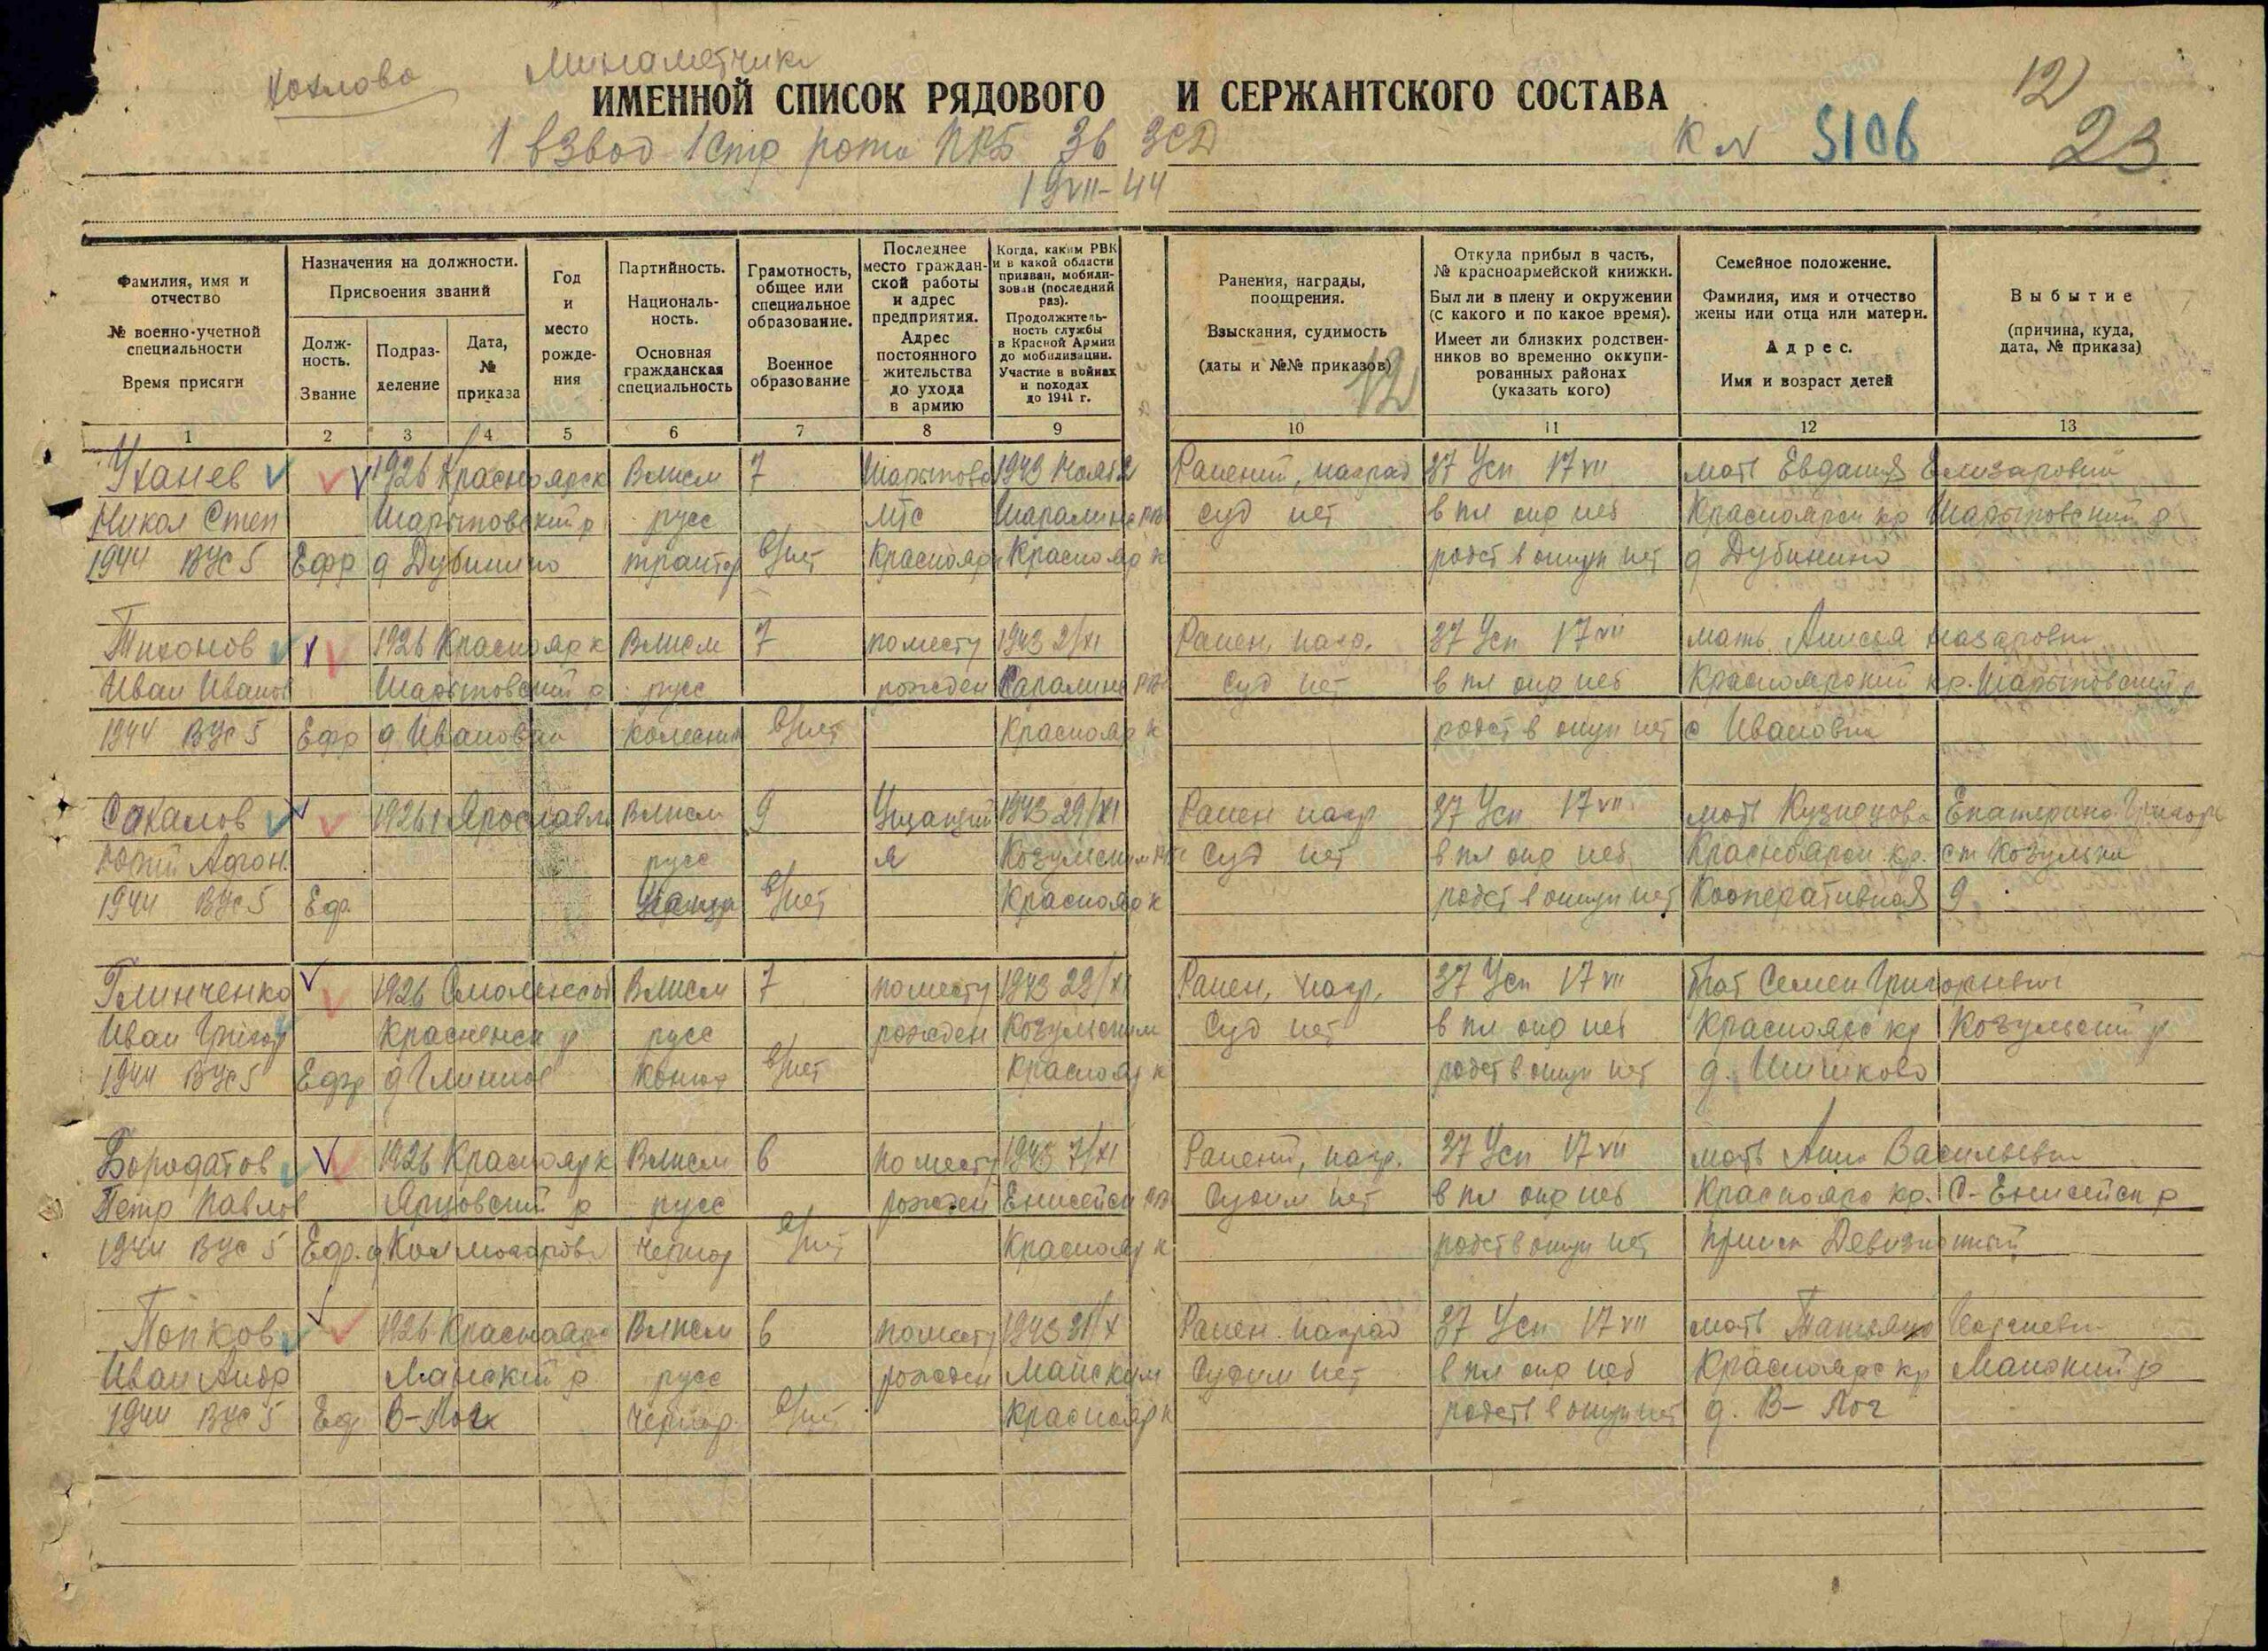 Козлова
Минометчики
12
ИМЕННОЙ СПИСОК РЯДОВОГО И СЕРЖАНТСКОГО СОСТАВА
1 взвод 1 стр рота 36 ЗСД
К № 5106
23
19 VII-44
Фамилия, имя и отчество
№ военно-учетной специальности
Время присяги
Назначения на должности.
Присвоения званий
Долж-
ность.
Звание
Подраз-
деление
Дата,
№
приказа
Год
и
место
рожде-
ния
Партийность.
Националь-
ность.
Основная
гражданская
специальность
Грамотность,
общее или
специальное
образование.
Военное
образование
Последнее
место граждан-
ской работы
и адрес
предприятия.
Адрес
постоянного
жительства
до ухода
в армию
Когда, каким РВК
и в какой области
призван, мобили-
зован (последний
раз).
Продолжитель-
ность службы
в Красной Армии
до мобилизации.
Участие в войнах
и походах
до 1941 г.
Ранения, награды,
поощрения.
Взыскания, судимость
(даты и №№ приказов)
12
Откуда прибыл в часть,
№ красноармейской книжки.
Был ли в плену и окружении
(с какого и по какое время).
Имеет ли близких родствен-
ников во временно оккупи-
рованных районах
(указать кого)
Семейное положение.
Фамилия, имя и отчество
жены или отца или матери.
Адрес.
Имя и возраст детей
Выбытие
(причина, куда,
дата, № приказа)
1 2 3 4 5 6 7 8 9 10 11 12 13
Уханев 1926 Красноярск Влксм 7 Шарыпово 1943 Ранений, наград 37 Усп 17 VII мать Евдакия Елизаровна
Никол Степ Шарыповский р русс МТС РВК суд нет в пл окр неб Красноярск кр Шарыповский р
1944 ВУС 5 Ефр д Дубинино трактор в/нет Краснояр Краснояр к родст в оккуп нет д Дубинино
Тихонов 1926 Краснояр к Влксм 7 по месту 1943 2/XI Ранен, нагр. 37 Усп 17 VII мать Анисья Назаровна
Иван Иванов Шарыповский р русс рожден Саралинс РВК Суд нет в пл окр неб Красноярский кр. Шарыповский р
1944 ВУС 5 Ефр д Ивановка в/нет Краснояр к родст в оккуп нет д Ивановка
Сакалов 1926 Ярославль Влксм 9 Учащий 1943 29/XI Ранен нагр 37 Усп 17 VII мать Кузнецова Екатерина Григорь
Юрий Афон. русс я Козульским РВК Суд нет в пл окр неб Красноярск. кр. ст Козулька
1944 ВУС 5 Ефр. в/нет Краснояр к родст в оккуп нет Кооперативная 9
Глинченко 1926 Смоленской Влксм 7 по месту 1943 29/XI Ранен, нагр. 37 Усп 17 VII брат Семен Григорьевич
Иван Григор Красненск р русс рожден Козульским Суд нет в пл окр неб Красноярс кр Козульский р
1944 ВУС 5 Ефр д Глинное Конюх в/нет Краснояр к родст в оккуп нет д. Шишково
Бородатов 1926 Краснояр к Влксм 6 по месту 1943 7/XI Ранений, нагр. 37 Усп 17 VII мать Анна Васильевна
Петр Павлов Ярцовский р русс рожден Енисейск РВК Судим нет в пл окр неб Краснояро кр. С-Енисейск р
1944 ВУС 5 Ефр. д. чернор в/нет Краснояр к родст в оккуп нет Прииск
Попков 1926 Краснояр Влксм 6 по месту 1943 31/X Ранен. наград 37 Усп 17 VII мать Татьяна
Иван Андр Манский р русс рожден Манским Судим нет в пл окр неб Красноярс кр Манский р
1944 ВУС 5 Еф В-Лог чернор. в/нет Краснояр к родств в оккуп нет д. В-Лог